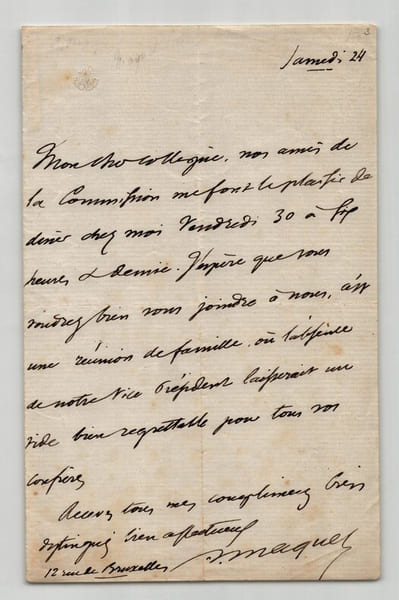 Samedi 24
Mon cher collègue, nos amis de
la Commission me font le plaisir de
diner chez moi Vendredi 30 à six
heures & demie. J'espère que vous
voudrez bien vous joindre à nous, c'est
une réunion de famille, où l'absence
de notre Vice Président laisserait un
vide bien regrettable pour tous vos
confrères
Recevez tous mes compliments bien
distingués bien affectueux
A. Maquet
12 rue de Bruxelles